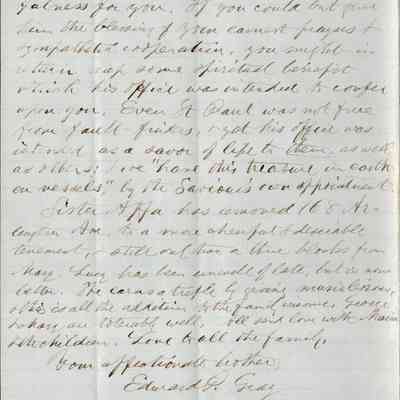 fulness for you. If you could but give
him the blessing of your earnest prayers &
sympathetic cooperation, you might in
return reap some spiritual benefit
which his office was intended to confer
upon you. Even St Paul was not free
from fault finders, & yet his office was
intended as a savor of life to them, as well
as others: "we have this treasure in earth
en vessels" by the Saviour's own appointment
Sister Affa has removed 168 Ar-
lington Ave. to a more cheerful & desirable
tenement, & still not than a three blocks from
Mary. Lucy has been unwell of late, but is now
better. She earns a trifle by giving music lessons,
& this is all the addition to the family income. George
& Mary are tolerably well. All send love with Maria
& the children. Love to all the family,
Your affectionate brother
Edward P. Gray